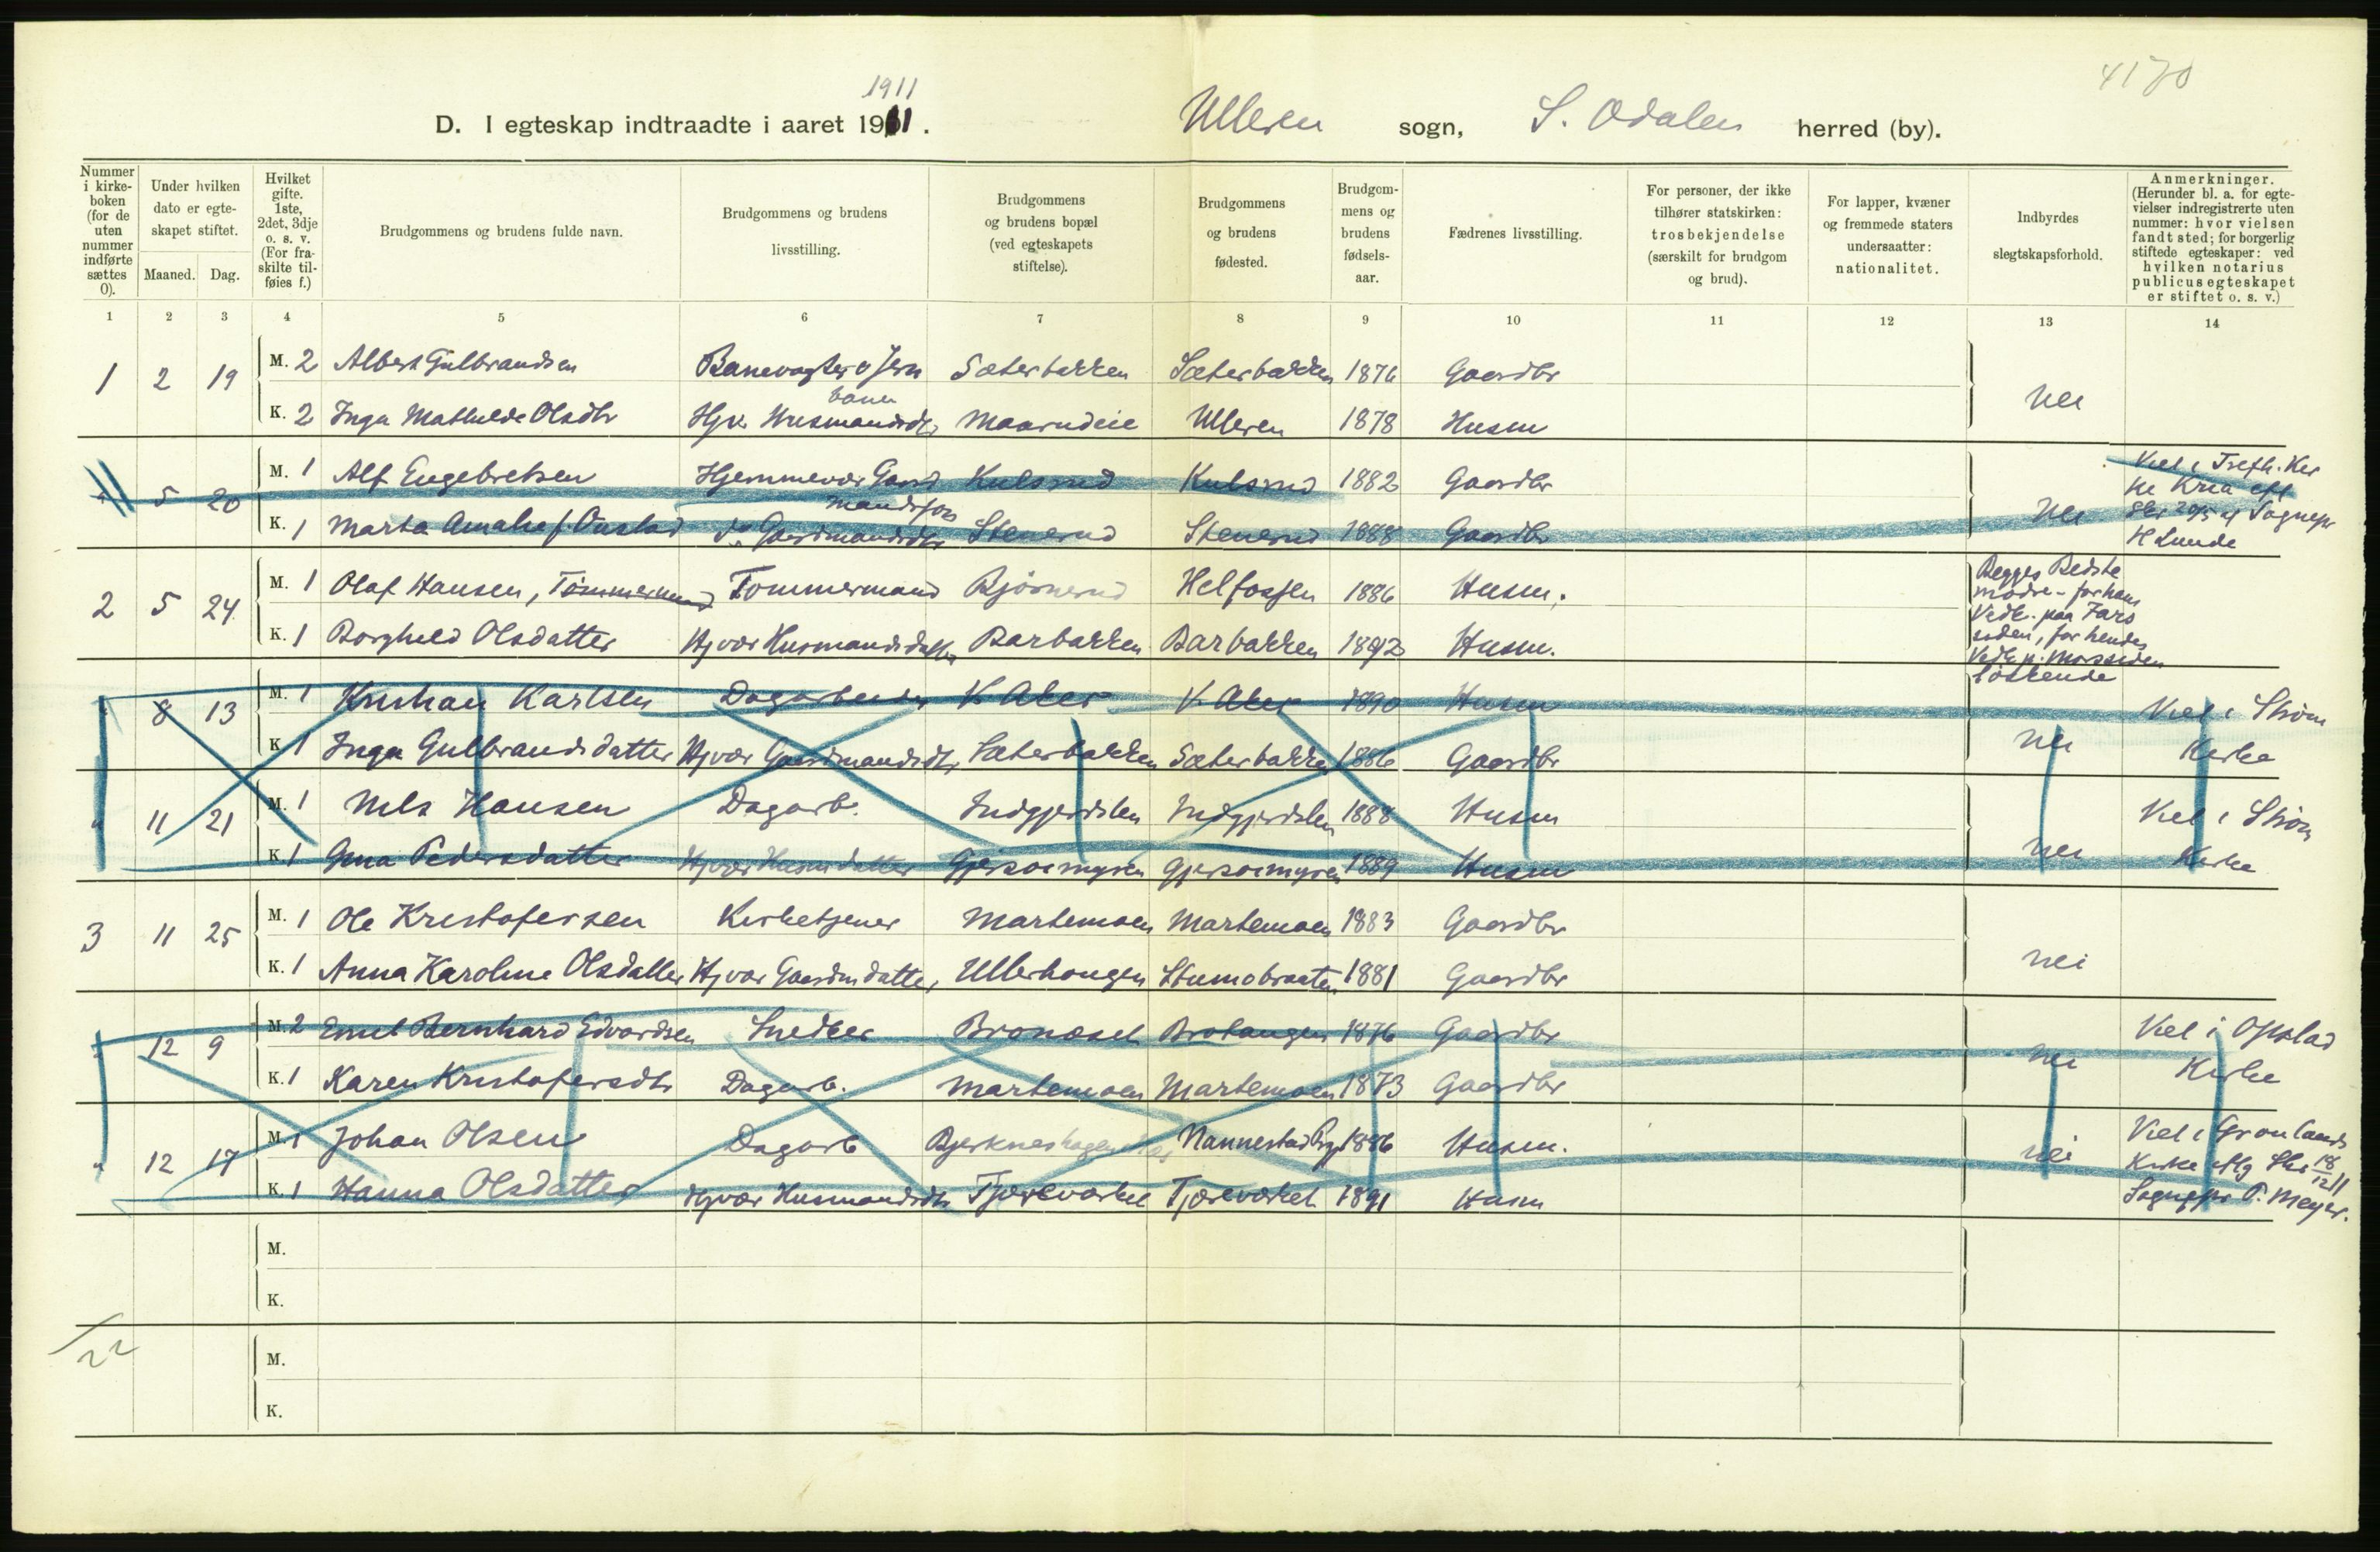 4170
1911
D. I egteskap indtraadte i aaret 1911. Ulleren sogn, S. Odalen herred (by).
Nummer i kirke-boken (for de uten nummer indførte sættes 0).
Under hvilken dato er egte-skapet stiftet.
Maaned. Dag.
Hvilket gifte. 1ste, 2det, 3dje o. s. v. (For fra-skilte til-føies f.)
Brudgommens og brudens fulde navn.
Brudgommens og brudens livsstilling.
Brudgommens og brudens bopæl (ved egteskapets stiftelse).
Brudgommens og brudens fødested.
Brudgom-mens og brudens fødsels-aar.
Fædrenes livsstilling.
For personer, der ikke tilhører statskirken: trosbekjendelse (særskilt for brudgom og brud).
For lapper, kvæner og fremmede staters undersaatter: nationalitet.
Indbyrdes slegtskapsforhold.
Anmerkninger. (Herunder bl. a. for egte-vielser indregistrerte uten nummer: hvor vielsen fandt sted; for borgerlig stiftede egteskaper: ved hvilken notarius publicus egteskapet er stiftet o. s. v.)
1 2 3 4 5 6 7 8 9 10 11 12 13 14
1 2 19 M. 2 Albert Gulbrandsen Banevogter v Jern Sæterbakken Sæterbakken 1876 Gaardbr
banen
K. 2 Inga Mathilde Olsdtr Hjv. Husmandsdtr Maarudeie Ulleren 1878 Husm Nei
" 5 20 M. 1 Alf Engebretsen Hjemmevær Gaard Kulsrud Kulsrud 1882 Gaardbr
mandssøn
K. 1 Marta Amalie Opstad Do Gaardmandsdtr Stenerud Stenerud 1888 Gaardbr Nei
Viet i Trefh. Kir
ke Kria efl
Skr 20/5 af Sognepr
H Lunde
2 5 24 M. 1 Olaf Hansen, Tømmermand Tømmermand Bjørnerud Helfossen 1886 Husm.
K. 1 Borghild Olsdatter Hjvær Husmandsdatter Barbakken Barbakken 1892 Husm.
Begges Bedste
mødre - for hans
Vedk. paa Fars
siden, for hendes
Vedk p. Morssiden
søskende
" 8 13 M. 1 Kristian Karlsen Dagarbeider V. Aker V. Aker 1890 Husm
K. 1 Inga Gulbrandsdatter Hjvær Gaardmandsdtr Sæterbakken Sæterbakken 1886 Gaardbr Nei
Viet i Strøm
Kirke
" 11 21 M. 1 Nils Hansen Dagarb. Indgjerdslen Indgjerdslen 1888 Husm
K. 1 Gina Pedersdatter Hjvær Husmdatter Gjersoemyren Gjersoemyren 1889 Husm Nei
Viet i Strøm
Kirke
3 11 25 M. 1 Ole Kristofersen Kirketjener Martemoen Martemoen 1883 Gaardbr
K. 1 Anna Karoline Olsdatter Hjvær Gaardmdatter Ullerhaugen Stumobraaten 1881 Gaardbr Nei
" 12 9 M. 2 Emil Bernhard Edvardsen Snedker Bronæset Brohaugen 1876 Gaardbr
K. 1 Karen Kristofersdtr Dagarb. Martemoen Martemoen 1873 Gaardbr Nei
Viet i Opstad
Kirke
" 12 17 M. 1 Johan Olsen Dagarb Bjerkneshagen Nannestad Prgj 1886 Husm.
K. 1 Hanna Olsdatter Hjvær Husmandsdtr Tjæreværket Tjæreværket 1891 Husm Nei
Viet i Grønlands
Kirke iflg Skr 18/12 11
Sognepr P. Meyer.
M.
K.
M.
K.